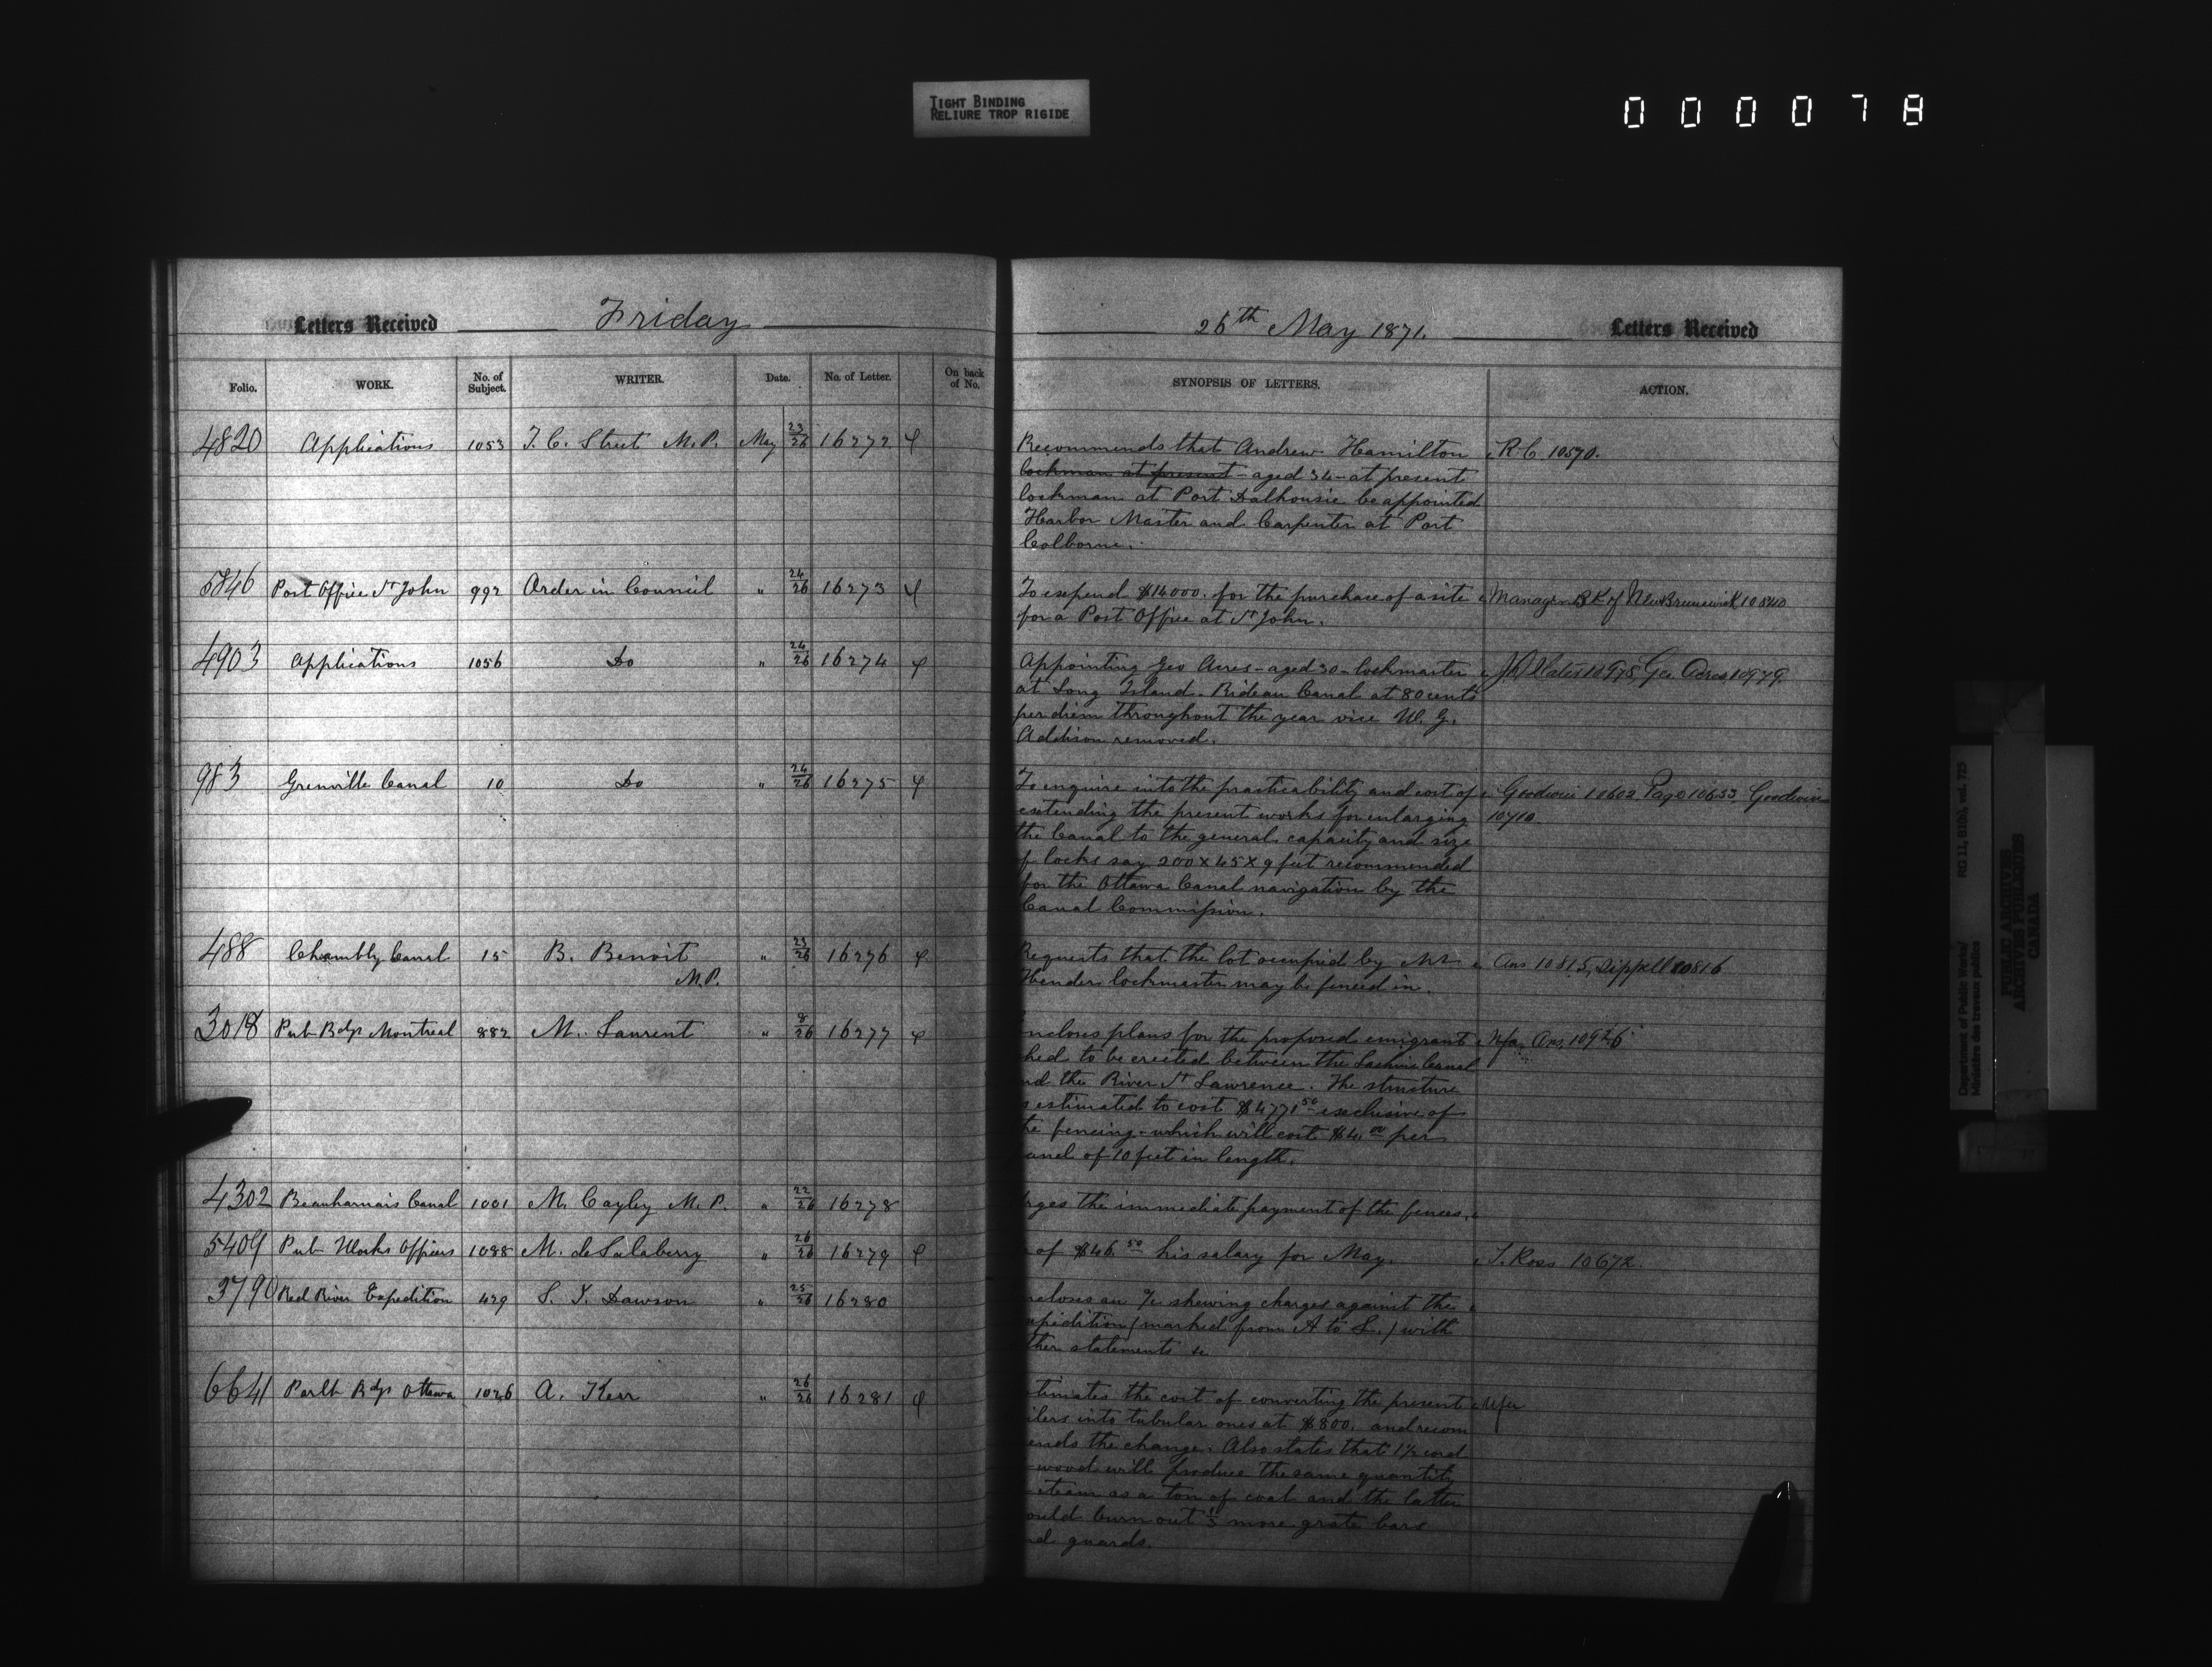 TIGHT BINDING
RELIURE TROP RIGIDE
0 0 0 0 7 8
Letters Received Friday
Folio. WORK. No. of Subject. WRITER. Date. No. of Letter. On back of No.
4820 Applications 1053 T. C. Street M.P. May 23/26 16272
5846 Post Office St John 992 Order in Council " 24/26 16273
4903 Applications 1056 Do " 24/26 16274
983 Grenville Canal 10 Do " 24/26 16275
488 Chambly Canal 15 B. Benoit " 23/26 16276
M.P.
3018 Pub Bdgs Montreal 882 M. Laurent " 8/26 16277
4302 Beauharnais Canal 1001 M. Cayley M.P. " 22/26 16278
5409 Pub Works Officers 1088 M. de Salaberry " 26/26 16279
3790 Red River Expedition 429 S. J. Dawson " 25/26 16280
6641 Parlt Bdgs Ottawa 1026 A. Kerr " 26/26 16281
26th May 1871. Letters Received
SYNOPSIS OF LETTERS. ACTION.
Recommends that Andrew Hamilton R.C. 10570.
lockman at present - aged 34 - at present
lockman at Port Dalhousie be appointed
Harbor Master and Carpenter at Port
Colborne.
To expend $14000. for the purchase of a site Manager BK of New Brunswick 10840
for a Post Office at St John.
Appointing Geo Acres - aged 30 - lockmaster 10978, Geo. Acres 10979
at Long Island. Rideau Canal at 80 cents
per diem throughout the year vice W. G.
Addison removed.
To enquire into the practicability and cost of Goodwin 10602 Page 10653 Goodwin
extending the present works for enlarging 10710
the Canal to the general capacity and size
of locks say 200 x 45 x 9 feet recommended
for the Ottawa Canal navigation by the
Canal Commission.
Requests that the lot occupied by Mr Ans 10815, Sippell 10816
Hender lockmaster may be fenced in.
ncloses plans for the proposed emigrant Nfa Ans. 10926
hed to be erected between the Lachine Canal
nd the River St Lawrence. The structure
s estimated to cost $4771.50 exclusive of
he fencing - which will cost $4.00 per
anel of 10 feet in length.
rges the immediate payment of the fences.
of $46.50 his salary for May. T. Ross 10672.
ncloses an a/c shewing charges against the
xpedition (marked from A to L.) with
ther statements &c
timates the cost of converting the present Nfa
ilers into tubular ones at $800. and recom
ends the change. Also states that 1½ cord
wood will produce the same quantity
steam as a ton of coal and the latter
ould burn out 1/3 more grate bars
nd guards.
Department of Public Works/
Ministère des travaux publics
RG 11, B1(b), vol. 725
PUBLIC ARCHIVES
ARCHIVES PUBLIQUES
CANADA